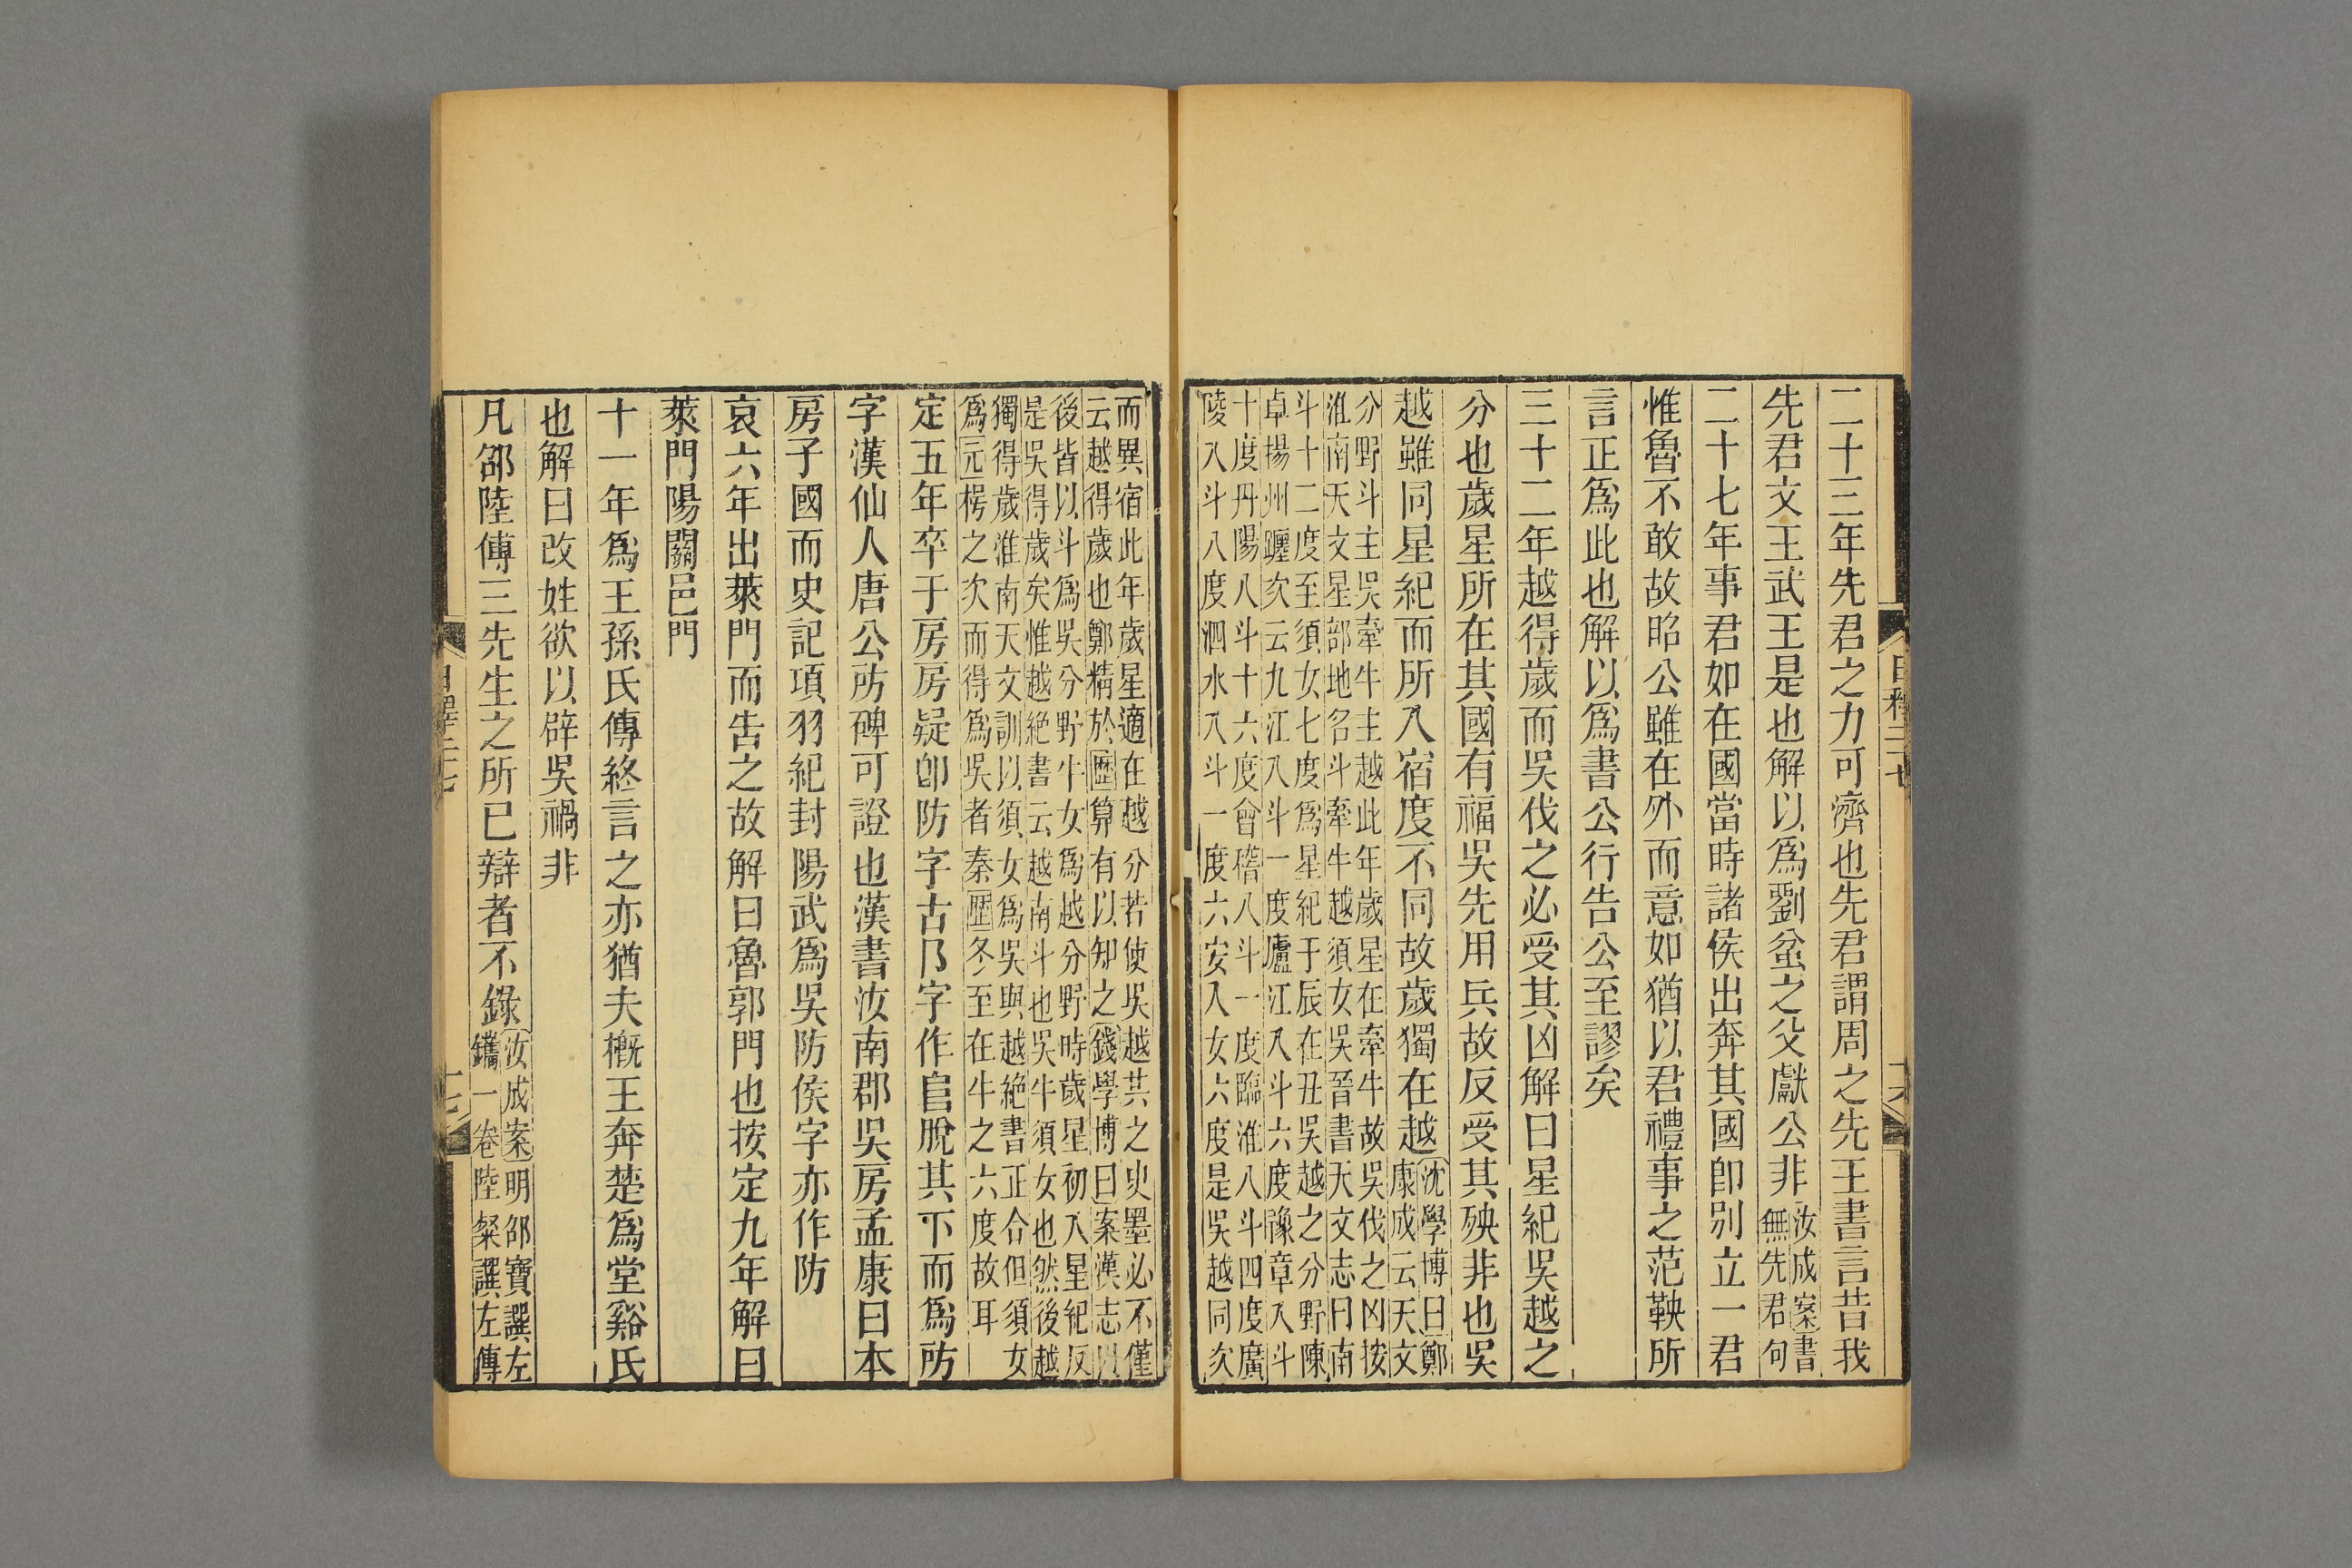 二十三年先君之力可濟也先君謂周之先王書言昔我
先君文王武王是也解以爲劉蚠之父獻公非汝成案書
無先君句
二十七年事君如在國當時諸侯出奔其國卽別立一君
惟魯不敢故昭公雖在外而意如猶以君禮事之范鞅所
言正爲此也解以爲書公行告公至謬矣
三十二年越得歲而吳伐之必受其凶解曰星紀吳越之
分也歲星所在其國有福吳先用兵故反受其殃非也吳
越雖同星紀而所入宿度不同故歲獨在越沈學博曰鄭
康成云天文
分野斗主吳牽牛主越此年歲星在牽牛故吳伐之凶按
淮南天文星部地名斗牽牛越須女吳晉書天文志曰南
斗十二度至須女七度爲星紀于辰在丑吳越之分野陳
卓揚州躔次云九江入斗一度廬江入斗六度豫章入斗
十度丹陽入斗十六度會稽入斗一度臨淮入斗四度廣
陵入斗八度泗水入斗一度六安入女六度是吳越同次
而異宿此年歲星適在越分若使吳越共之史墨必不僅
云越得歲也鄭精於歷算有以知之錢學博曰案漢志以
後皆以斗爲吳分野牛女爲越分野時歲星初入星紀反
是吳得歲矣惟越絕書云越南斗也吳牛須女也然後越
獨得歲淮南天文訓以須女爲吳與越絕書正合但須女
爲元枵之次而得爲吳者秦歷冬至在牛之六度故耳
定五年卒于房房疑卽防字古阝字作𨸏脫其下而爲防
字漢仙人唐公防碑可證也漢書汝南郡吳房孟康曰本
房子國而史記項羽紀封陽武爲吳防侯字亦作防
哀六年出萊門而告之故解曰魯郭門也按定九年解曰
萊門陽關邑門
十一年爲王孫氏傳終言之亦猶夫槪王奔楚爲堂谿氏
也解曰改姓欲以辟吳禍非
凡邵陸傅三先生之所已辯者不錄汝成案明邵寶譔左
鐫一卷陸粲譔左傳
日知錄二十七
十六
十七